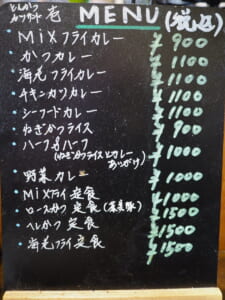 とんかつ
カツサンド 壱 MENU (税込)
・MiXフライカレー ¥900
・かつカレー ¥1100
・海老フライカレー ¥1100
・チキンカツカレー ¥1100
・シーフードカレー ¥1100
・ねぎかつライス ¥900
・ハーフ&ハーフ ¥1000
(ねぎかつライスとカレー
あいがけ)
・野菜カレー ¥1000
・MiXフライ定食 ¥1000
・ロースかつ定食 ¥1500
・ヘレかつ定食 ¥1500
・海老フライ定食 ¥1500